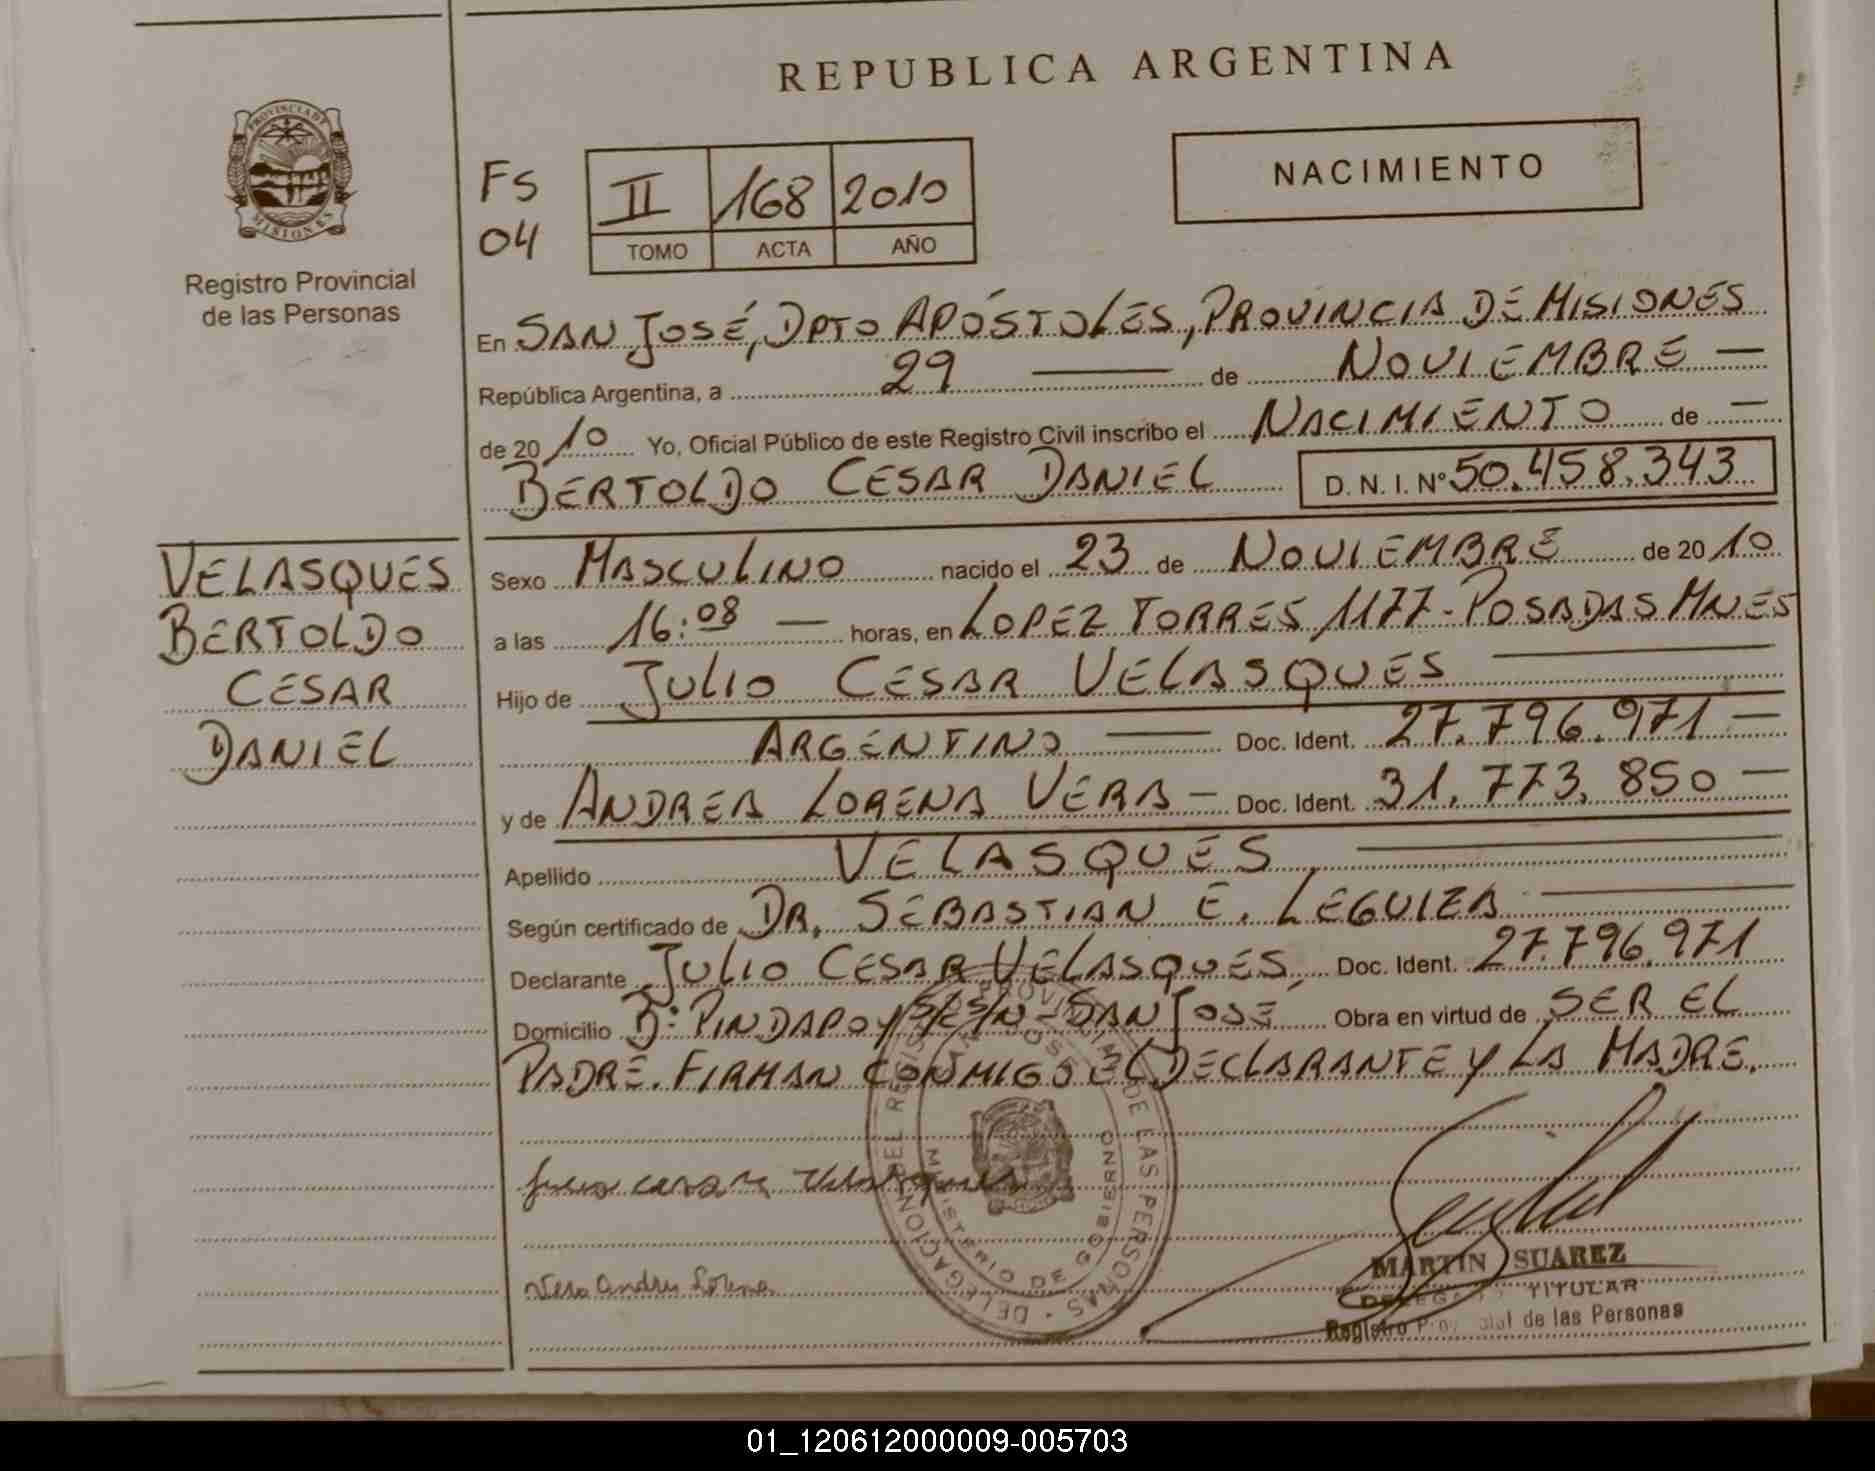 REPUBLICA ARGENTINA
PROVINCIA DE
MISIONES
Registro Provincial
de las Personas
FS
04
II 168 2010
TOMO ACTA AÑO
NACIMIENTO
En SAN JOSÉ, DPTO APÓSTOLES, PROVINCIA DE MISIONES
República Argentina, a 29 — de NOVIEMBRE —
de 20 10 Yo, Oficial Público de este Registro Civil inscribo el NACIMIENTO de —
BERTOLDO CESAR DANIEL D. N. I. Nº 50.458.343
VELASQUES
BERTOLDO
CESAR
DANIEL
Sexo MASCULINO nacido el 23 de NOVIEMBRE de 20 10
a las 16:08 — horas, en LOPEZ TORRES 1177-POSADAS MNES
Hijo de JULIO CESAR VELASQUES
ARGENTINO — Doc. Ident. 27.796.971 —
y de ANDREA LORENA VERA — Doc. Ident. 31.773.850 —
Apellido VELASQUES
Según certificado de DR. SEBASTIAN E. LEGUIZA
Declarante JULIO CESAR VELASQUES, Doc. Ident. 27.796.971
Domicilio Bº PINDAPOY S/C S/N - SAN JOSÉ Obra en virtud de SER EL
PADRE. FIRMAN CONMIGO EL DECLARANTE Y LA MADRE.
DELEGACION DEL REGISTRO PROVINCIAL DE LAS PERSONAS
SAN JOSE
MINISTERIO DE GOBIERNO
Velasques
Vera Andrea Lorena
MARTIN SUAREZ
DELEGADO TITULAR
Registro Provincial de las Personas
01_120612000009-005703